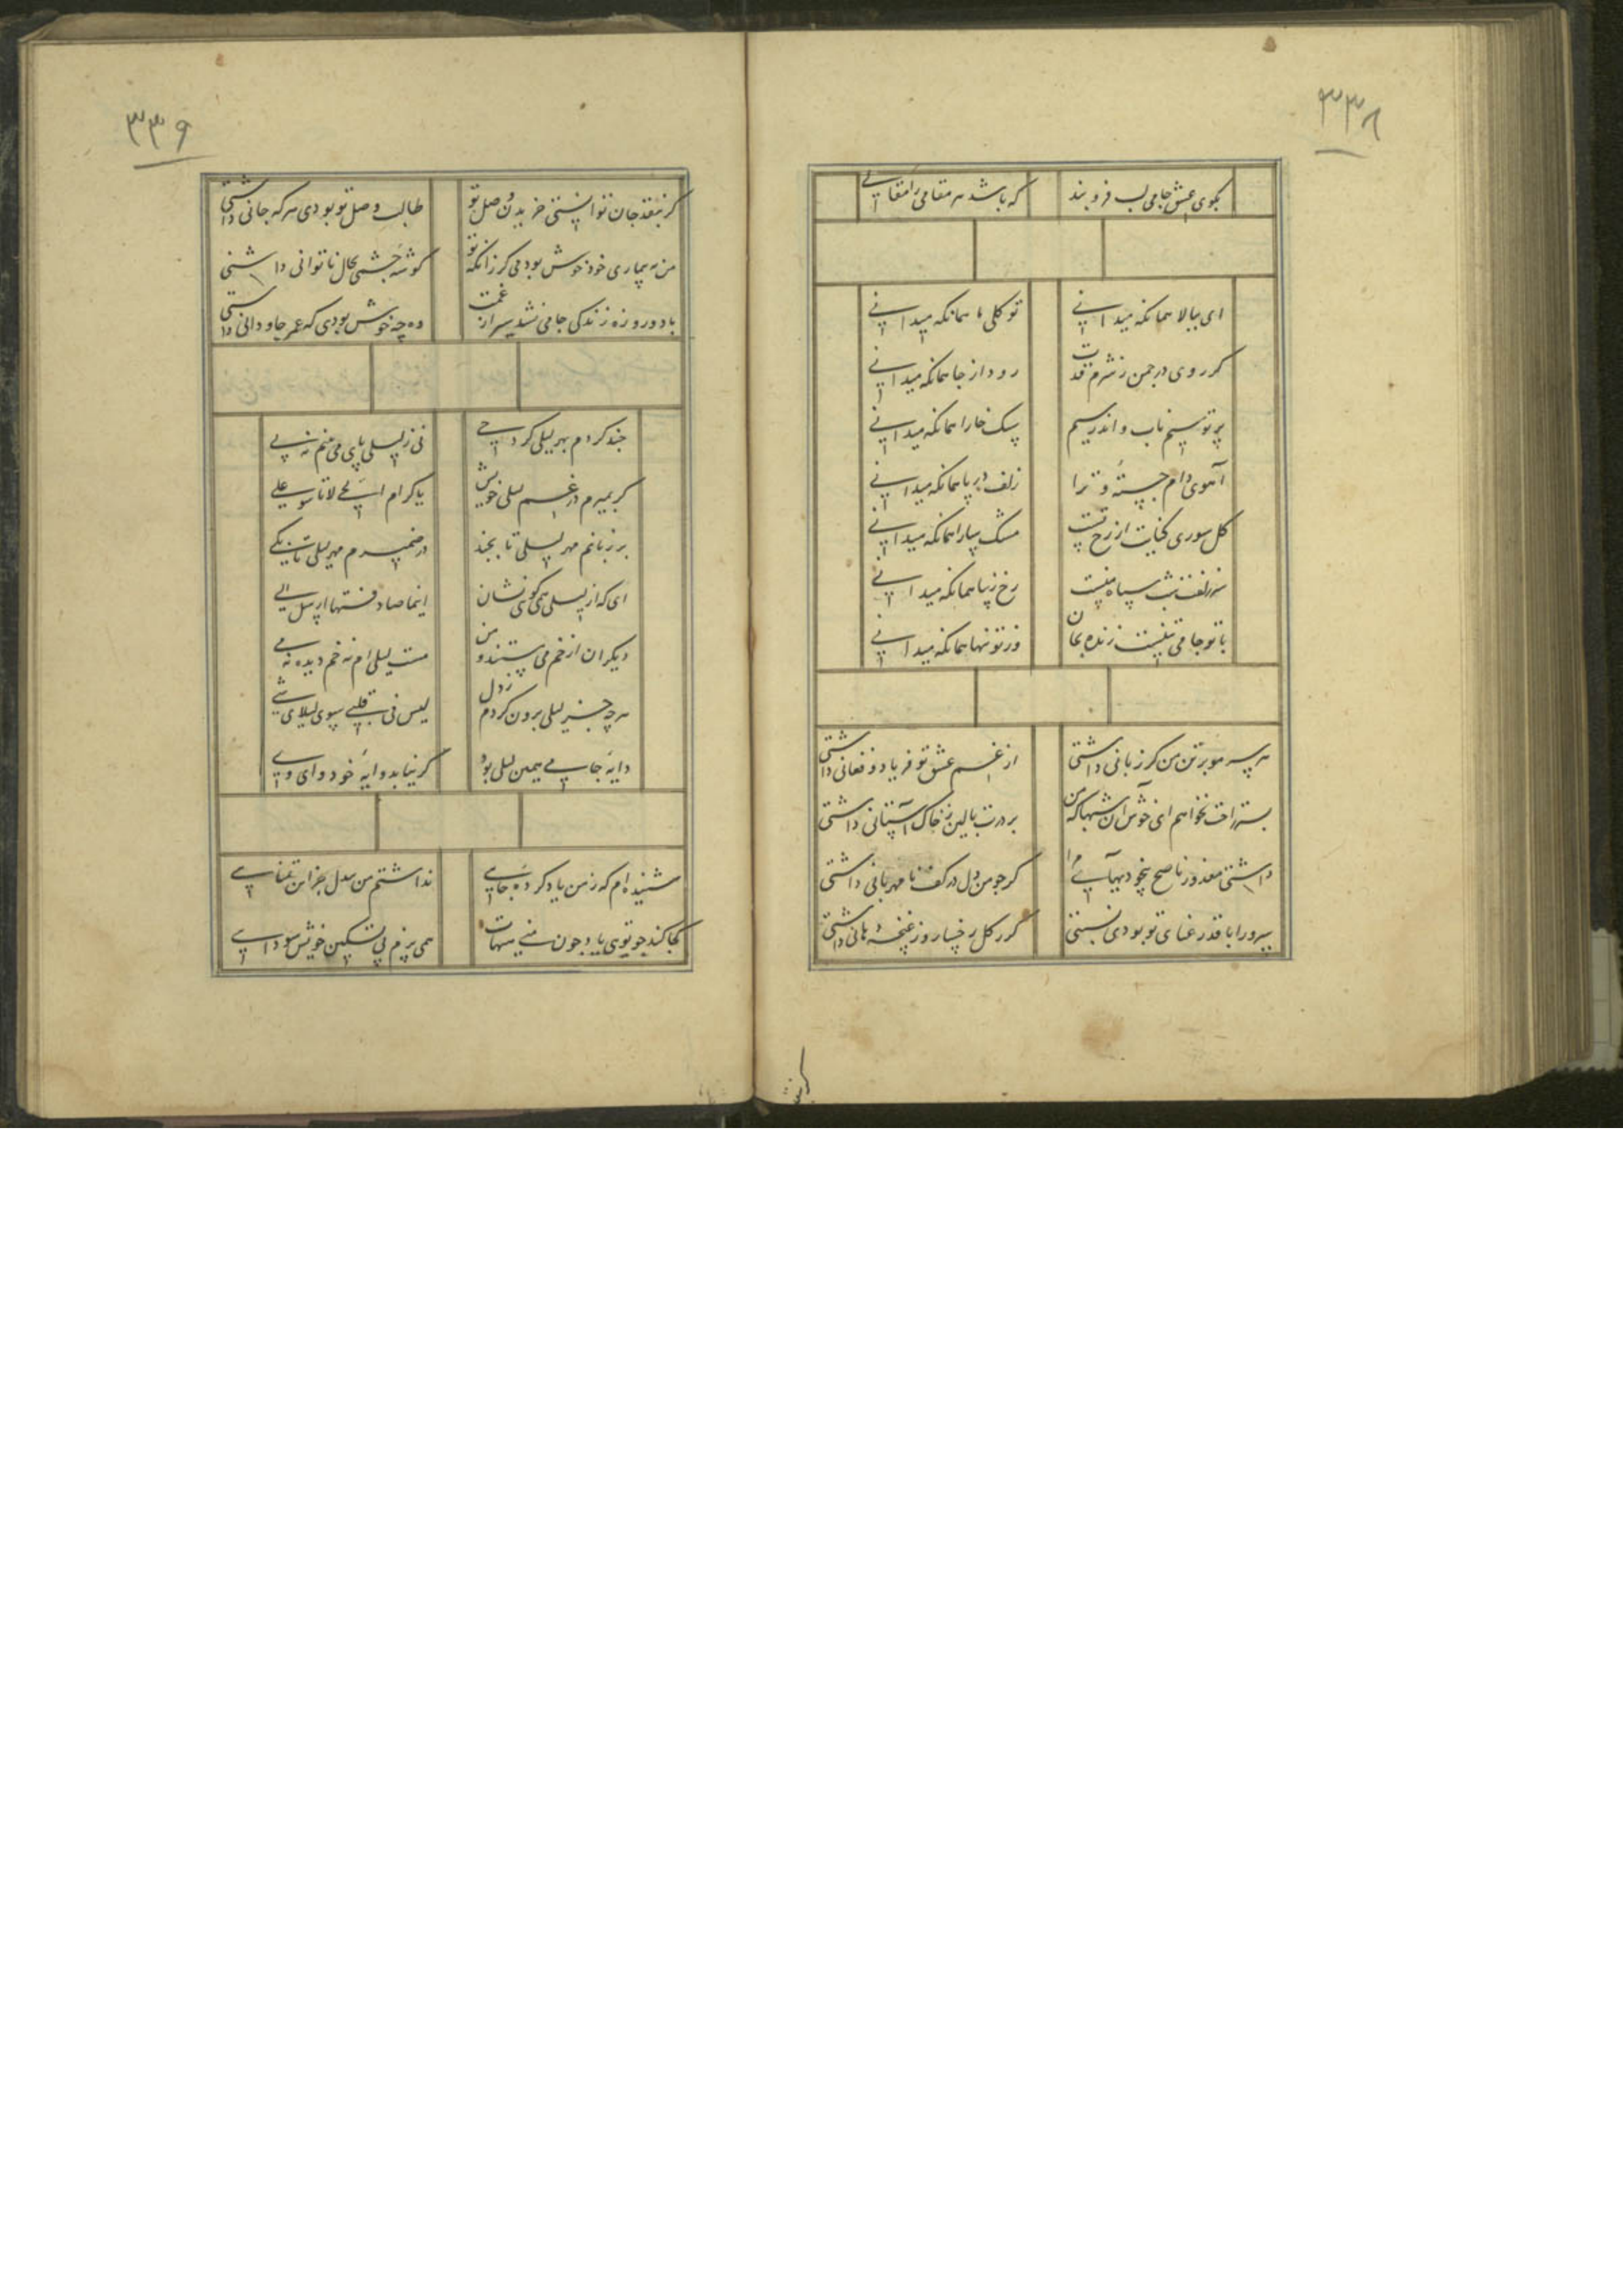 ۳۳۸
بکوی عشق جامی لب فروبند
که باشد هر مقامی را مقالی
ای ببالا همانکه میدانی
تو کلی یا همانکه میدانی
کر روی در چمن ز شرم قدت
رود از جا همانکه میدانی
بر تو سیم ناب و اندر سیم
سنک خارا همانکه میدانی
آهوی دام جسته و ترا
زلف در پا همانکه میدانی
کل سوری کنایت از رخ تست
مشک سارا همانکه میدانی
سر زلفت شب سیاه منست
رخ زیبا همانکه میدانی
با تو جامی نیست زنده بجان
وز تو تنها همانکه میدانی
هر سر مو بر تن من کر زبانی داشتی
از غم عشق تو فریاد و فغانی داشتی
بستر راحت نخواهم ای خوش آن شبها که من
بر درت بالین ز خاک آستانی داشتی
داشتی معذور ناصح بیخودیهای مرا
کر چو من دل در کف نامهربانی داشتی
سرو را با قد رعنای تو بودی نسبتی
کر ز کل رخسار و ز غنچه دهانی داشتی
۳۳۹
کر بنقد جان توانستی خریدن وصل تو
طالب وصل تو بودی هر که جانی داشتی
من به بیماری خود خوش بودمی کر زانکه تو
کوشه چشمی بحال ناتوانی داشتی
با دو روزه زندکی جامی نشد سیر از غمت
وه چه خوش بودی که عمر جاودانی داشتی
چند کردم بهر لیلی کرد حی
نی ز لیلی پای می بینم نه پی
کر بمیرم در غم لیلی خویش
یا کرام الحی لا تاسوا علی
بر زبانم مهر لیلی تا بچند
در ضمیرم مهر لیلی تا بکی
ای که از لیلی همی کوی نشان
انما صادفتها ارسل الی
دیکران از خم می مستند و من
مست لیلی ام نه خم دیده نه می
هر چه جز لیلی برون کردم ز دل
لیس فی قلبی سوی لیلای شی
دایه جامی همین لیلی بود
کر نیابد دایه خود وای وی
شنیده ام که ز من یاد کرده جای
نداشتم من بیدل جز این تمنایی
کجا کند چو تویی یاد چون منی هیهات
همی پزم پی تسکین خویش سودایی